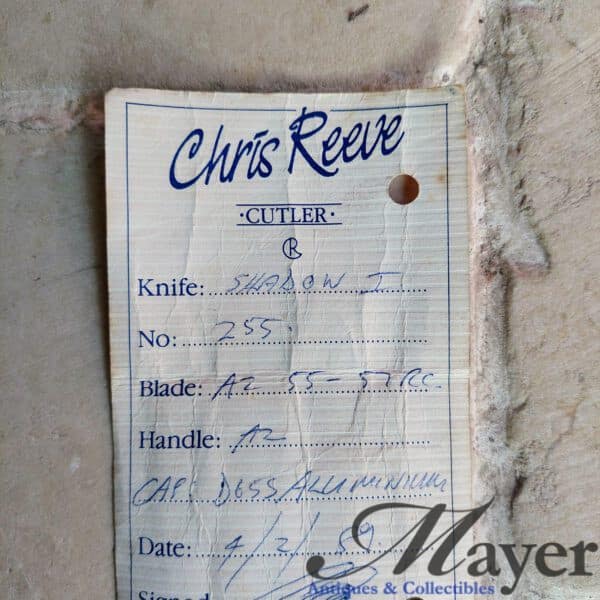 Chris Reeve
·CUTLER·
R
Knife: SHADOW I
No: 255.
Blade: A2 55-57RC
Handle: A2
CAP: D65S/ALUMINIUM
Date: 4/2/89.
Signed
Mayer
Antiques & Collectibles